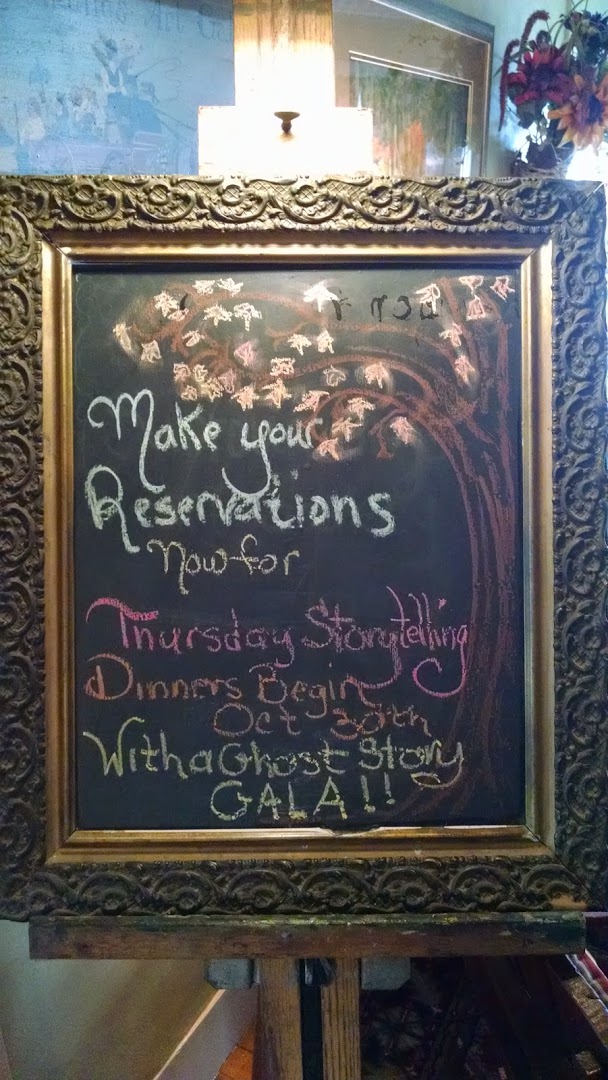 Make your
Reservations
Now for
Thursday Storytelling
Dinners Begin
Oct 30th
With a Ghost Story
GALA!!